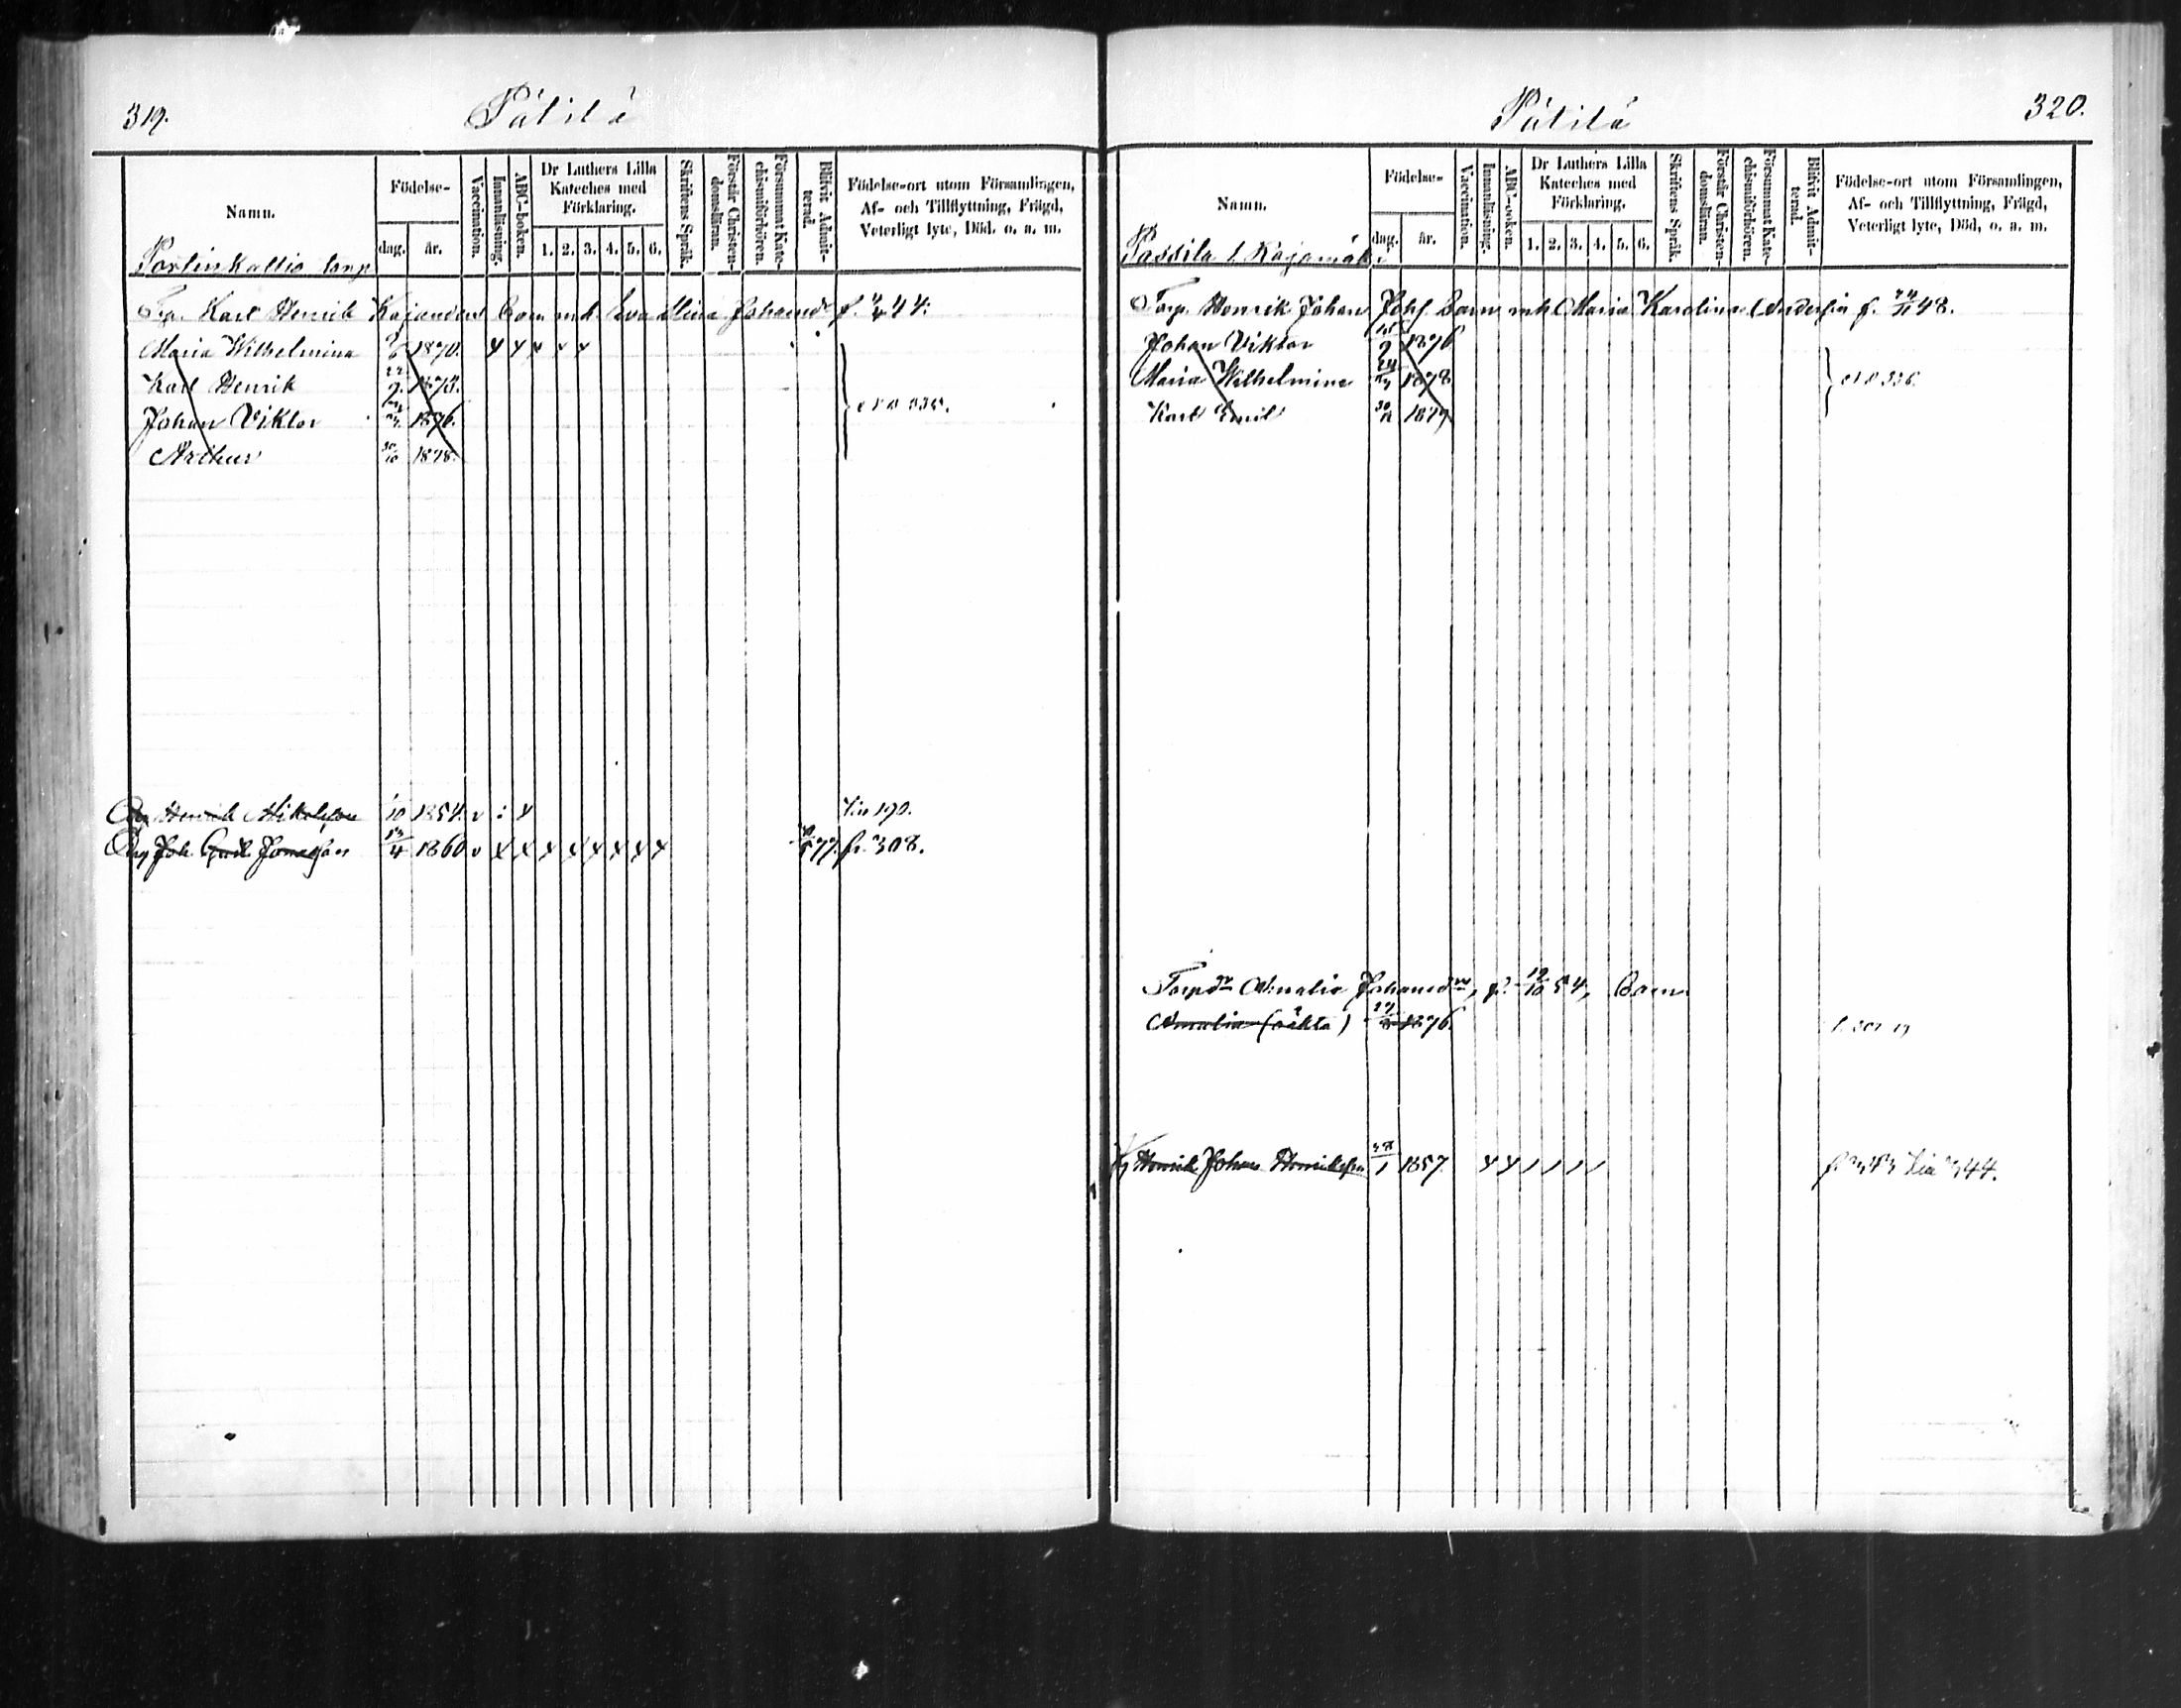 319.
Pätilä
Namn.
Födelse-
dag.
år.
Vaccination.
Innanläsning.
ABC-boken.
Dr Luthers Lilla
Kateches med
Förklaring.
1. 2. 3. 4. 5. 6.
Skriftens Språk.
Förstår Christen-
domsläran.
Försummat Kate-
chismiförhören.
Blifvit Admit-
terad.
Födelse-ort utom Församlingen,
Af- och Tillflyttning, Frägd,
Veterligt lyte, Död. o. a. m.
Portinkallio torp
Karl Henrik Kajanders barn mh. Eva Stina Johansdr f. 44.
Maria Wilhelmina 1870. x x x x x
Karl Henrik 1873.
Johan Viktor 1876.
Arthur 30/10 1878.
Henrik Mikelsson /10 1854. v : x Till 190.
Joh 1860 v x x x x x x x x 77. fr. 308.
320.
Pätilä
Namn.
Födelse-
dag.
år.
Vaccination.
Innanläsning.
ABC-boken.
Dr Luthers Lilla
Kateches med
Förklaring.
1. 2. 3. 4. 5. 6.
Skriftens Språk.
Förstår Christen-
domsläran.
Försummat Kate-
chismiförhören.
Blifvit Admit-
terad.
Födelse-ort utom Församlingen,
Af- och Tillflyttning, Frägd,
Veterligt lyte, Död, o. a. m.
Passila l. Rajamäki
Torp. Henrik Johan Johs. barn mh Maria Karolina Andersin f. 24/11 48.
Johan Viktor 1876
Maria Wilhelmina 1878
Karl Emil 1879
Torpdr Amalia Johansdr, f. 19/10 54, Barn
Amalia (oäkta) 1876.
Henrik Johan Henriksson 28/1 1857. x x / / / / fr 343 till 344.